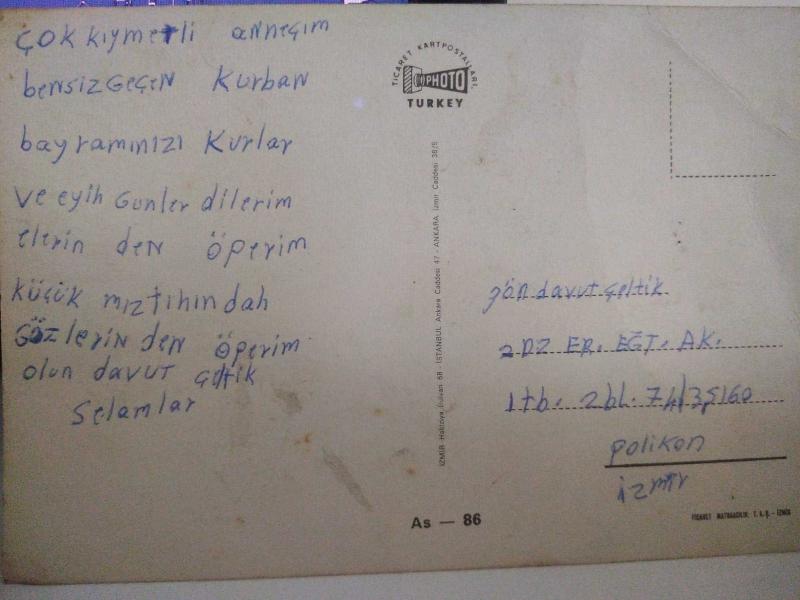 çok kıymetli anneçım
bensizgeçen Kurban
bayramınızı Kurlar
ve eyih Gunler dilerim
elerin den öperim
küçük mıztıhındah
Gözlerin den öperim
olun davut çeltik
selamlar
TİCARET KARTPOSTALLARI,
PHOTO
TURKEY
İZMİR Halitziya Bulvarı 68 - İSTANBUL Ankara Caddesi 47 - ANKARA İzmir Caddesi 38/5
As — 86
gön davut çeltik
2DZ ER. EĞT. AK.
1tb. 2bl. 74/3,5160
polikon
izmir
TİCARET MATBAACILIK T.A.Ş. - İZMİR